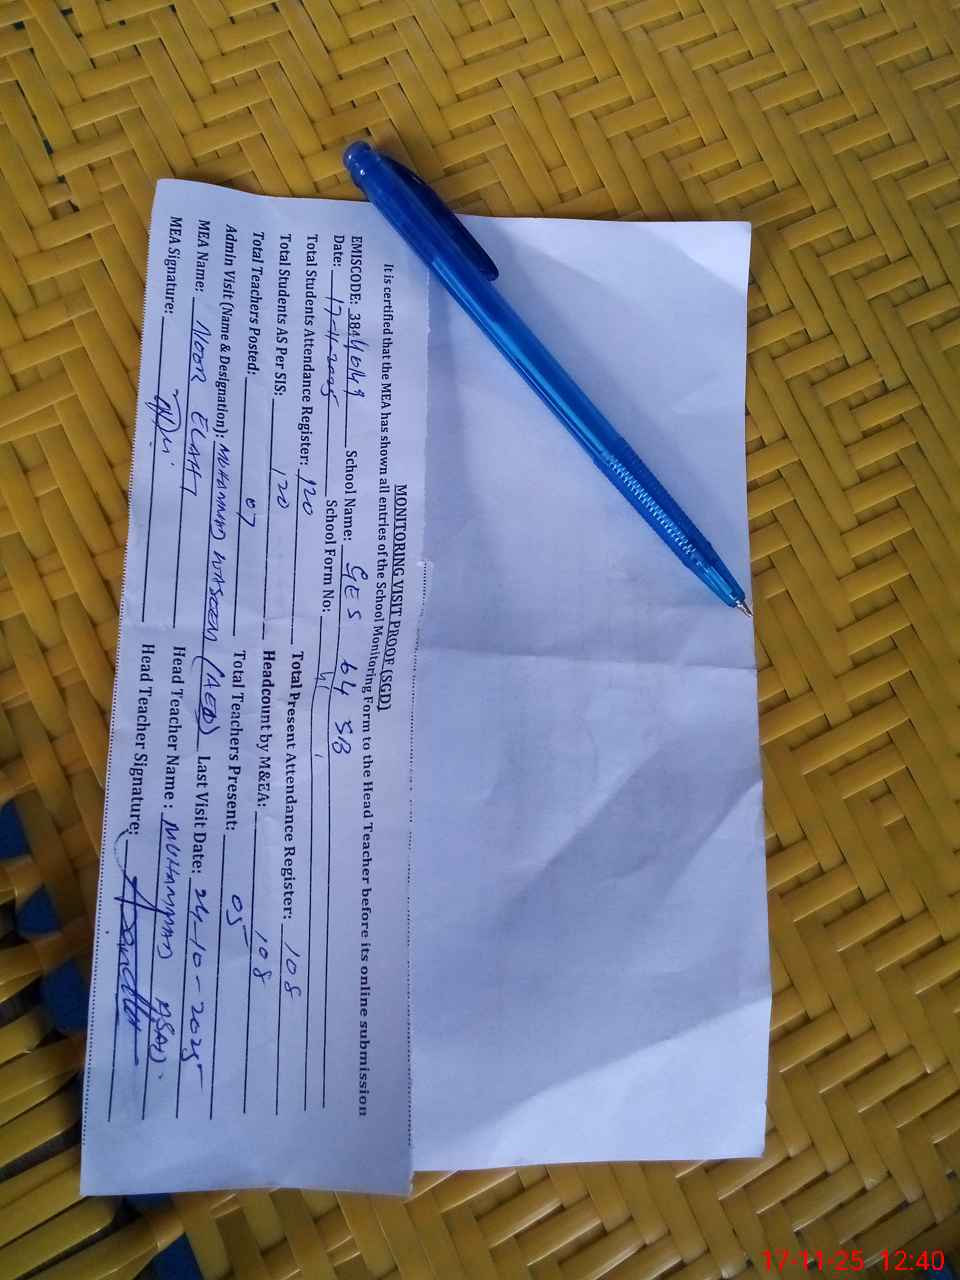 MONITORING VISIT PROOF (SGD)
It is certified that the MEA has shown all entries of the School Monitoring Form to the Head Teacher before its online submission
EMISCODE: 384 School Name: GES 64 SB
Date: 17-11-2025 School Form No:
Total Students Attendance Register: 120 Total Present Attendance Register: 108
Total Students AS Per SIS: 120 Headcount by M&EA: 108
Total Teachers Posted: 07 Total Teachers Present: 05
Admin Visit (Name & Designation): MUHAMMAD WASEEM (AEO) Last Visit Date: 24-10-2025
MEA Name: NOOR ELAHI Head Teacher Name : MUHAMMAD
MEA Signature: Head Teacher Signature:
17-11-25 12:40